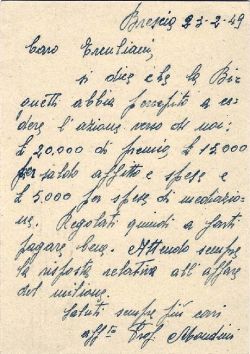 Brescia 23-2-49
Caro Ercoliani,
si dice che la Bi
onetti abbia a ce
dere l'azione verso di noi:
£ 20.000 di premio, £ 15.000
per saldo affitto e spese e
£ 5.000 per spese di mediazio
ne. Regolati quindi a farti
pagare bene. Attendo sempre
la risposta relativa all'affare
del milione.
Saluti sempre più cari
aff.mo Prof.